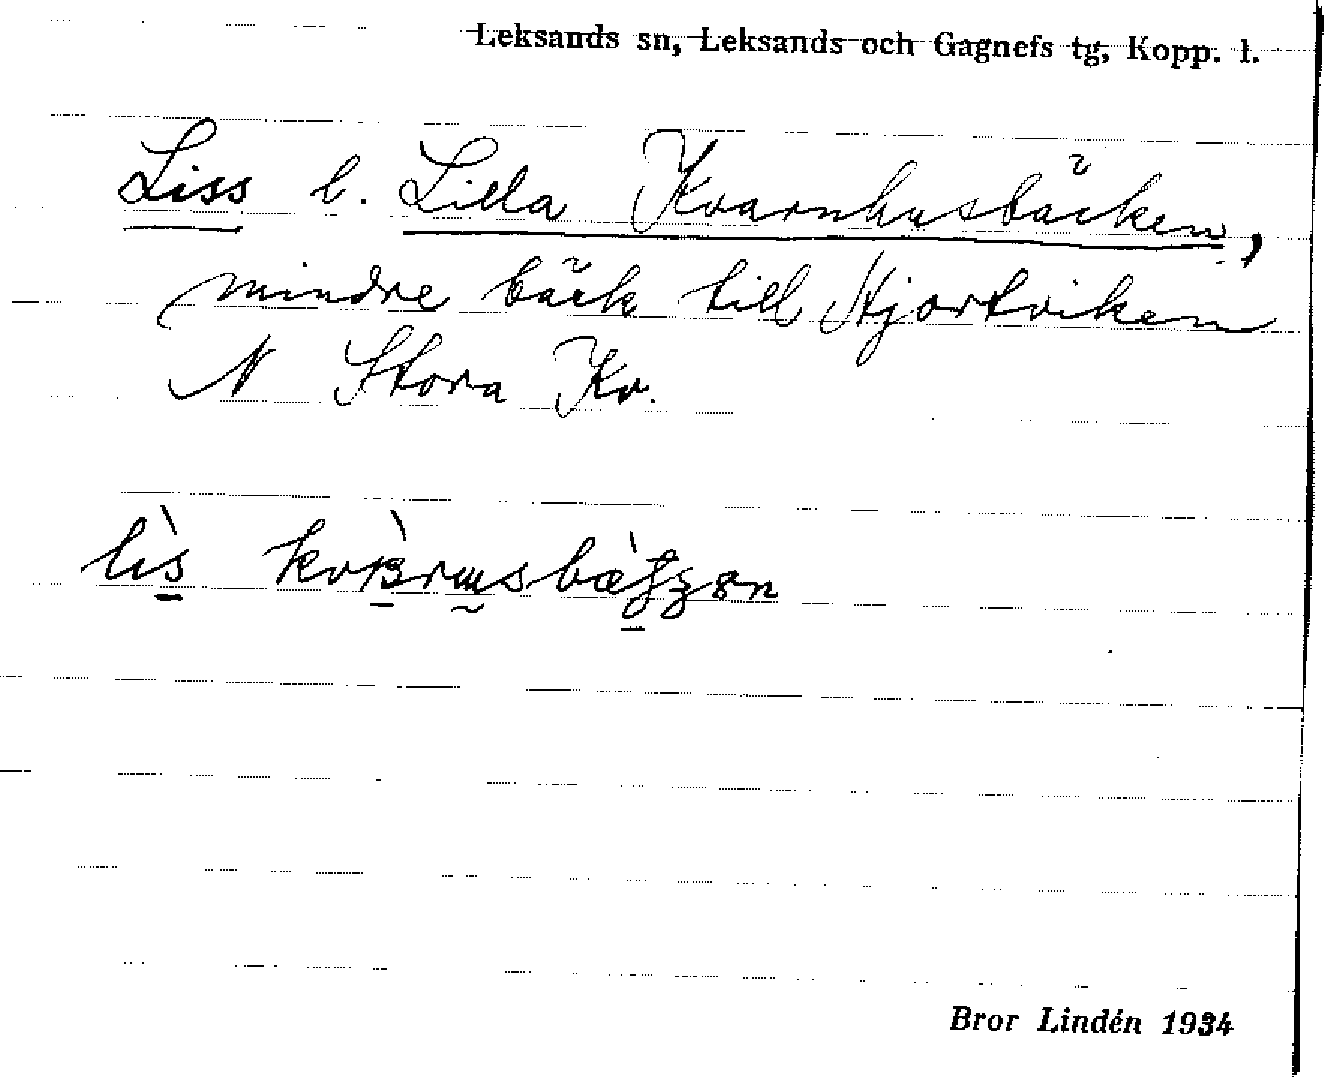 Leksands sn, Leksands och Gagnefs tg, Kopp. l.
Liss l. Lilla Kvarnhusbäcken,
mindre bäck till Hjortviken
N Stora Kv.
Bror Lindén 1934